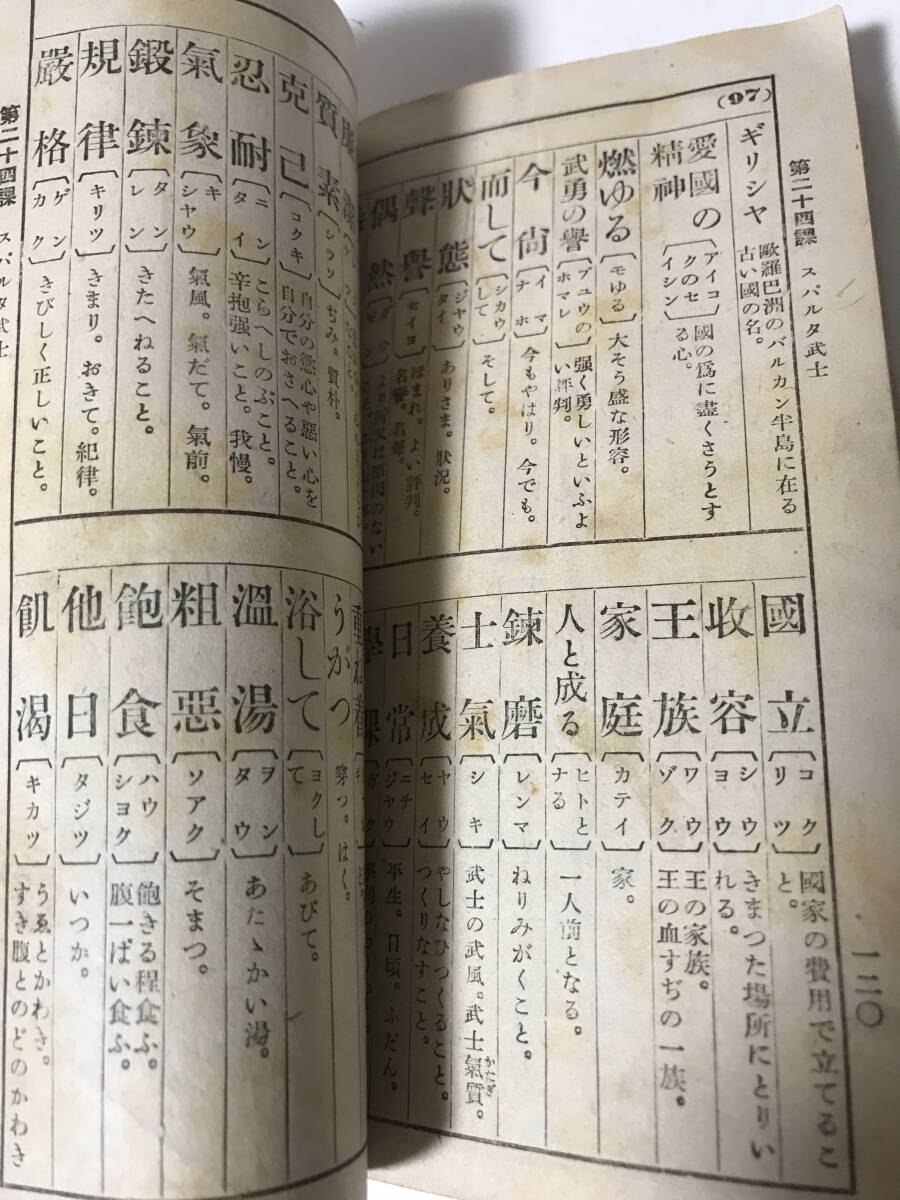 第二十四課 スパルタ武士
一二〇
(97)
ギリシヤ 歐羅巴洲のバルカン半島に在る
古い國の名。
愛國の
精神
〔アイコ
クのセ
イシン〕
國の爲に盡くさうとす
る心。
燃ゆる〔モゆる〕大そう盛な形容。
武勇の譽〔ブユウの
ホマレ〕
强く勇しいといふよ
い評判。
今尙〔イマ
ナホ〕今もやはり。今でも。
而して〔シカウ
して〕そして。
狀態〔ジヤウ
タイ〕ありさま。狀況。
聲譽〔セイヨ〕ほまれ。よい評判。
名譽。名聲。
偶然
國立〔コク
リツ〕國家の費用で立てるこ
と。
收容〔シウ
ヨウ〕きまつた場所にとりい
れる。
王族〔ワウ
ゾク〕王の家族。
王の血すぢの一族。
家庭〔カテイ〕家。
人と成る〔ヒトと
ナる〕一人前となる。
鍊磨〔レンマ〕ねりみがくこと。
士氣〔シキ〕武士の武風。武士氣質。
かたぎ
養成〔ヤウ
セイ〕やしなひつくること。
つくりなすこと。
日常〔ニチ
ジヤウ〕平生。日頃。ふだん。
學課
質素〔シツソ〕ぢみ。質朴。
克己〔コクキ〕自分の慾心や惡い心を
自分でおさへること。
忍耐〔ニン
タイ〕こらへしのぶこと。
辛抱强いこと。我慢。
氣象〔キ
シヤウ〕氣風。氣だて。氣前。
鍛鍊〔タン
レン〕きたへねること。
規律〔キリツ〕きまり。おきて。紀律。
嚴格〔ゲン
カク〕きびしく正しいこと。
重ね着
うがつ 穿つ。はく。
浴して〔ヨクし
て〕あびて。
溫湯〔ヲン
タウ〕あたゝかい湯。
粗惡〔ソアク〕そまつ。
飽食〔ハウ
シヨク〕飽きる程食ふ。
腹一ぱい食ふ。
他日〔タジツ〕いつか。
飢渴〔キカツ〕うゑとかわき。
すき腹とのどのかわき
第二十四課 スパルタ武士